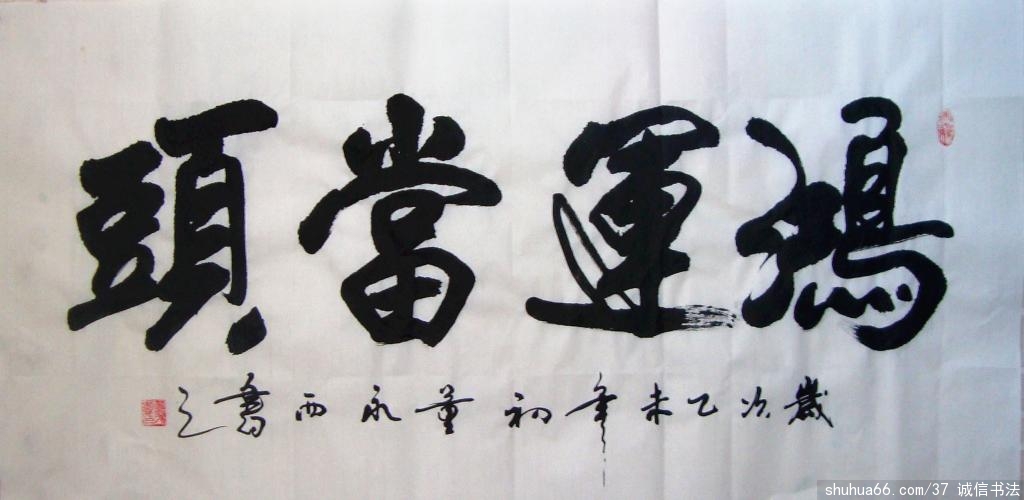 鴻運當頭
歲次乙未年初董永西書之
shuhua66.com/37 诚信书法